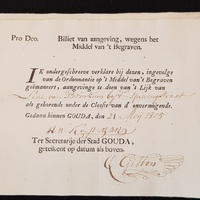 Pro Deo. Billiet van aangeving, wegens het
Middel van 't Begraven.
IK ondergeschreeve verklare bij dezen, ingevolge
van de Ordonnantie op 't Middel van 't Begraven
geëmaneert, aangevinge te doen van 't Lijk van
als gehorende onder de Classe van d' onvermogende.
Gedaan binnen GOUDA, den 21 Meij 1805
Ter Secretarije der Stad GOUDA,
geteikent op datum als boven.